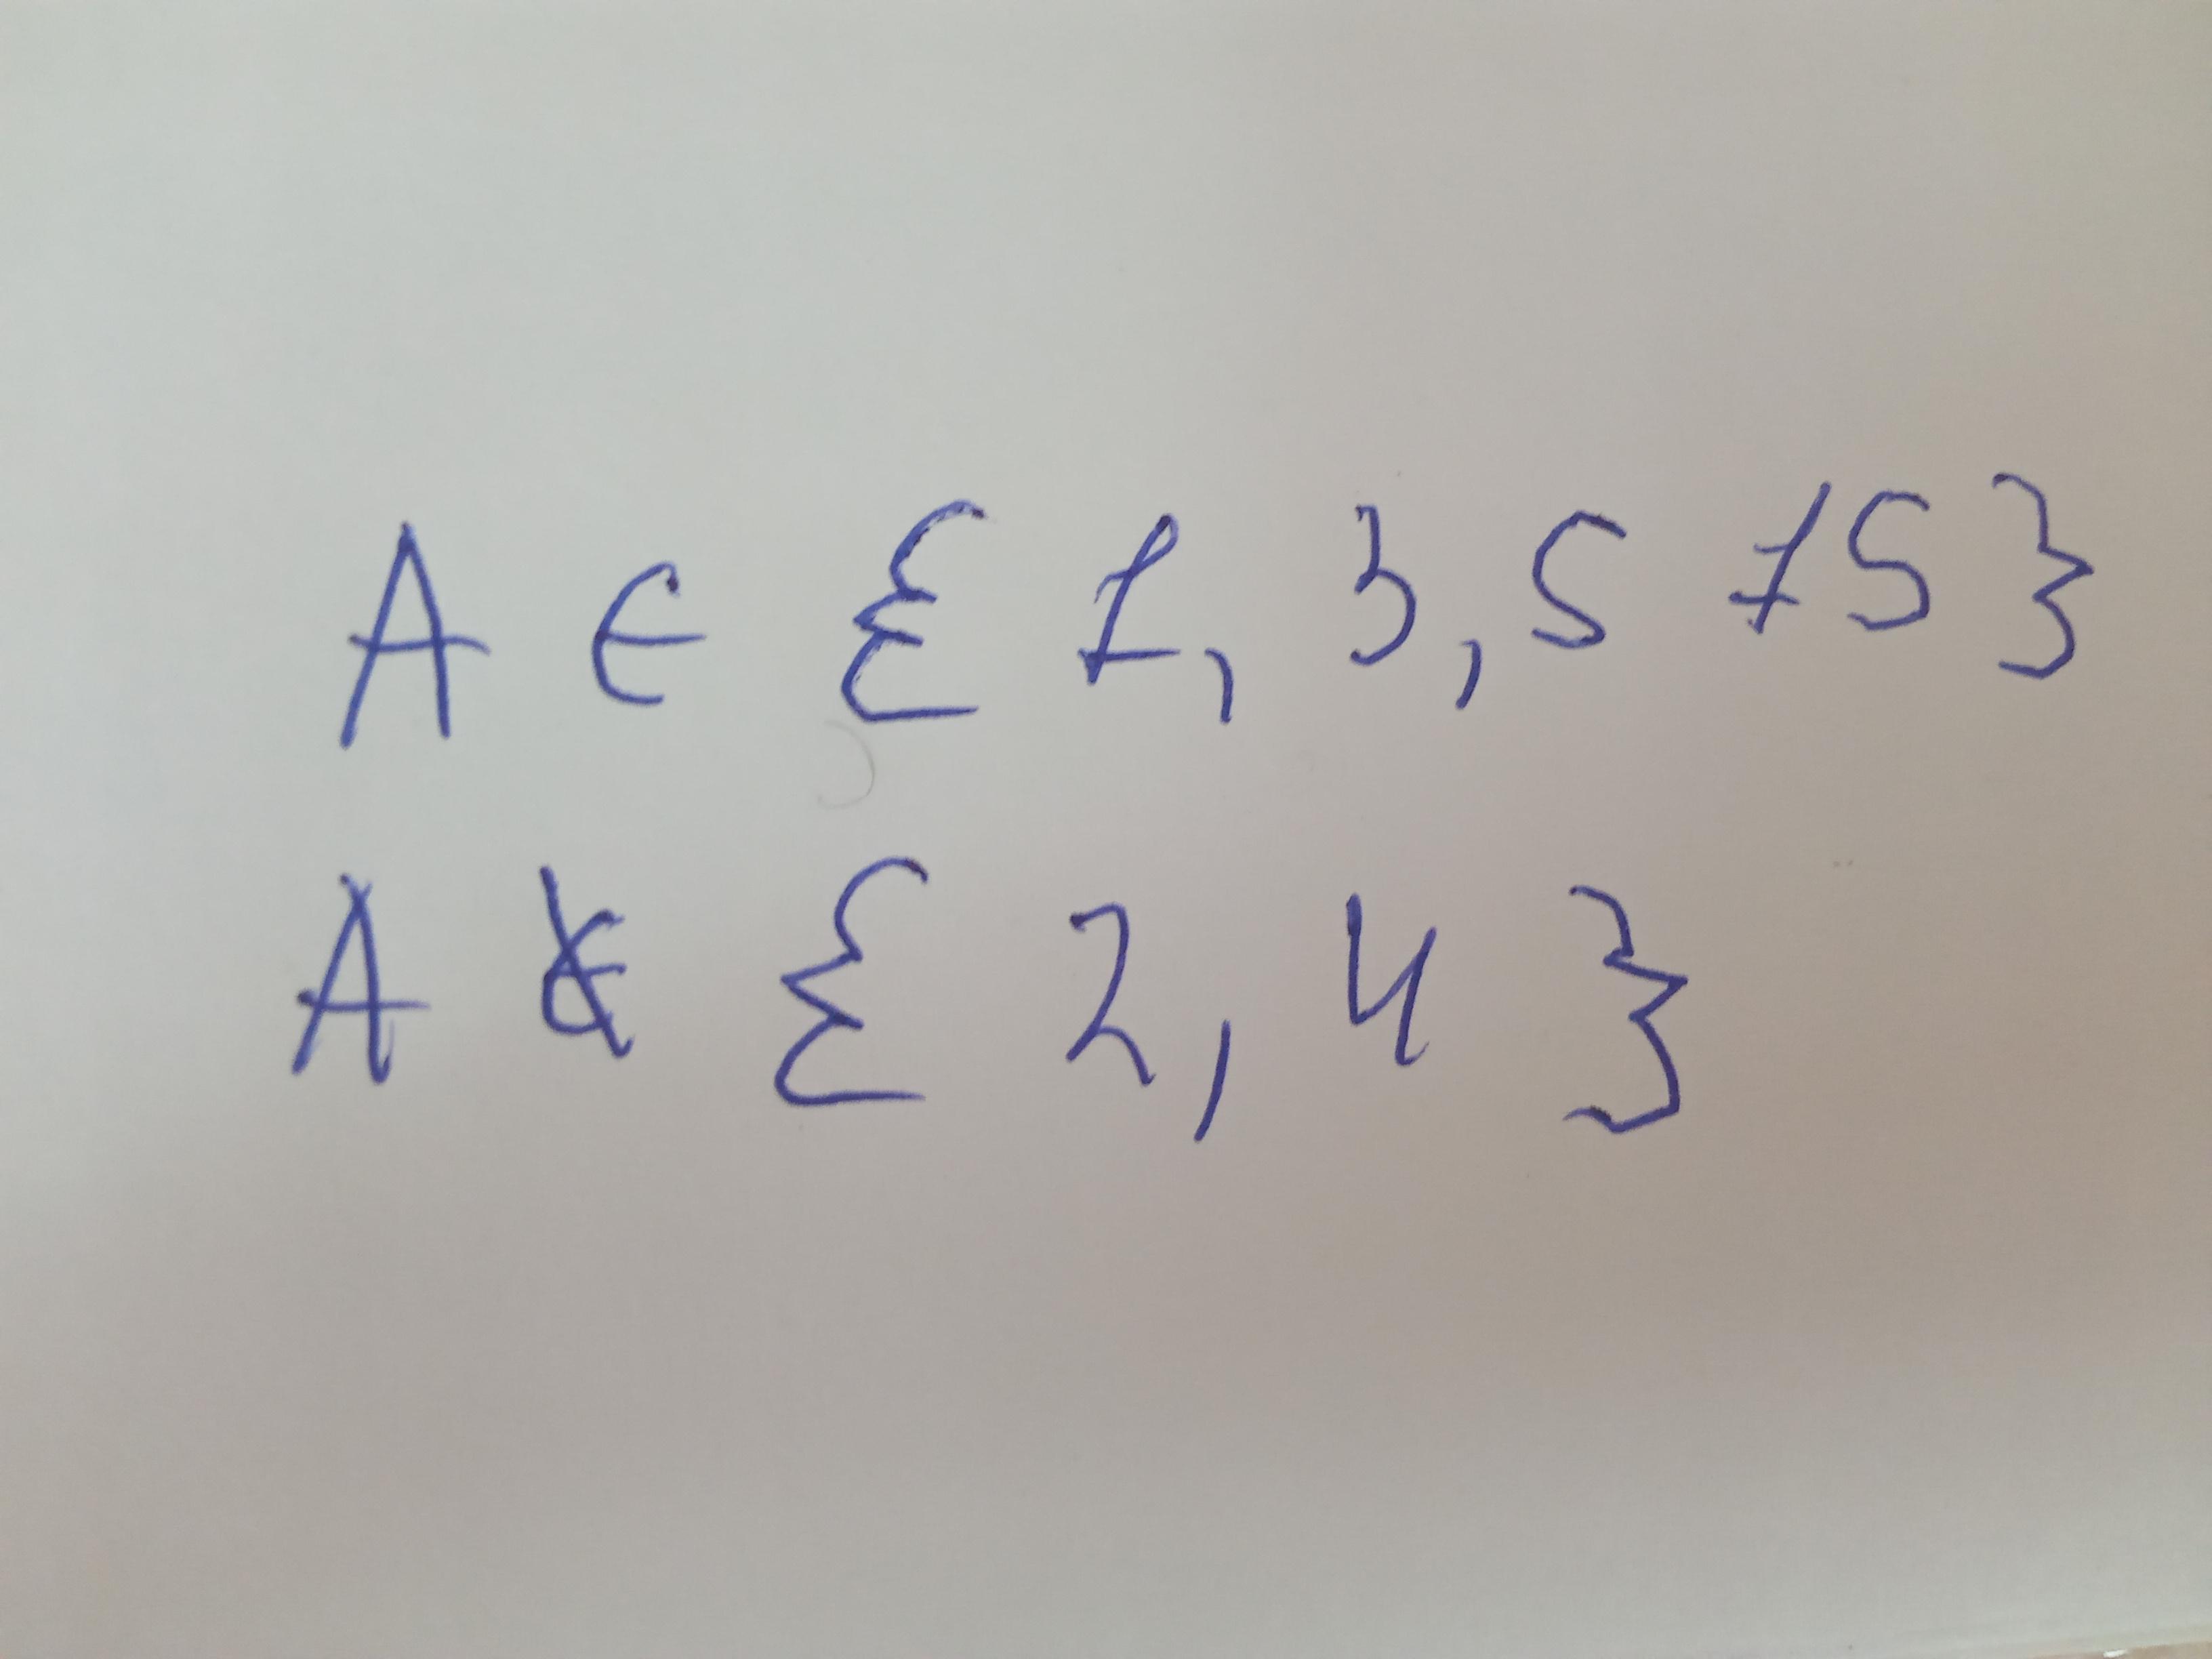 A ∈ { 1, 3, 5 15 }
A ∉ { 2, 4 }